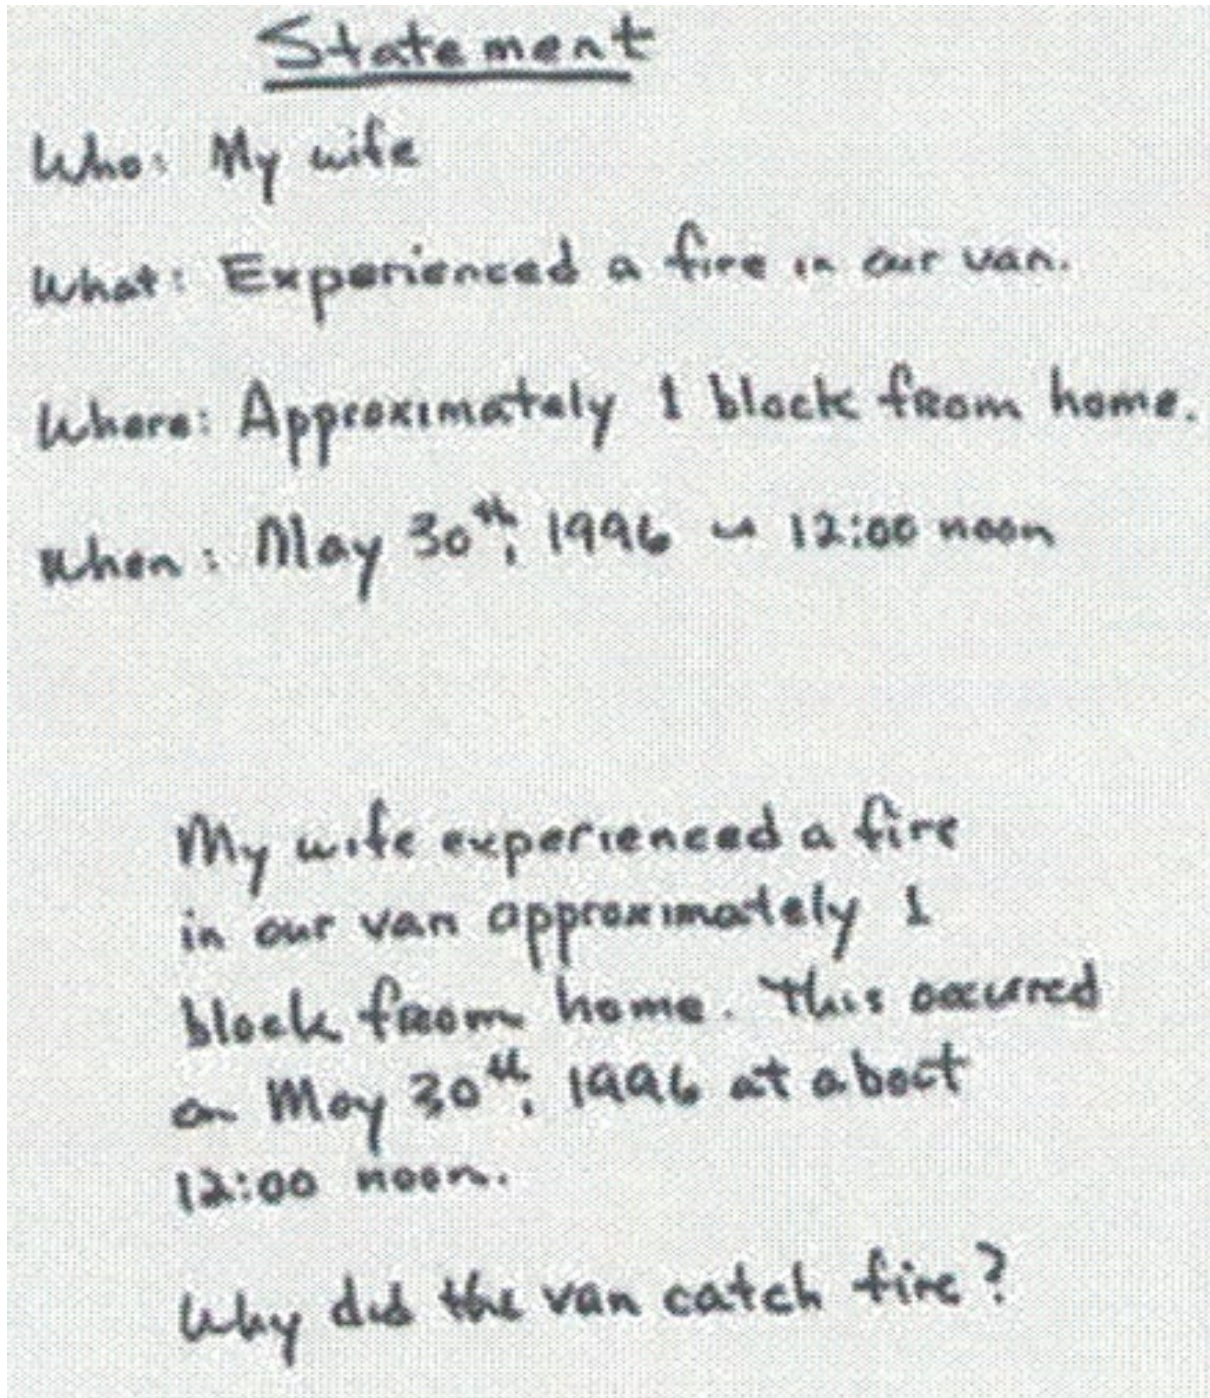 Statement
Who: My wife
What: Experienced a fire in our van.
Where: Approximately 1 block from home.
When: May 30th, 1996 ~ 12:00 noon
My wife experienced a fire
in our van approximately 1
block from home. This occurred
on May 30th, 1996 at about
12:00 noon.
Why did the van catch fire?